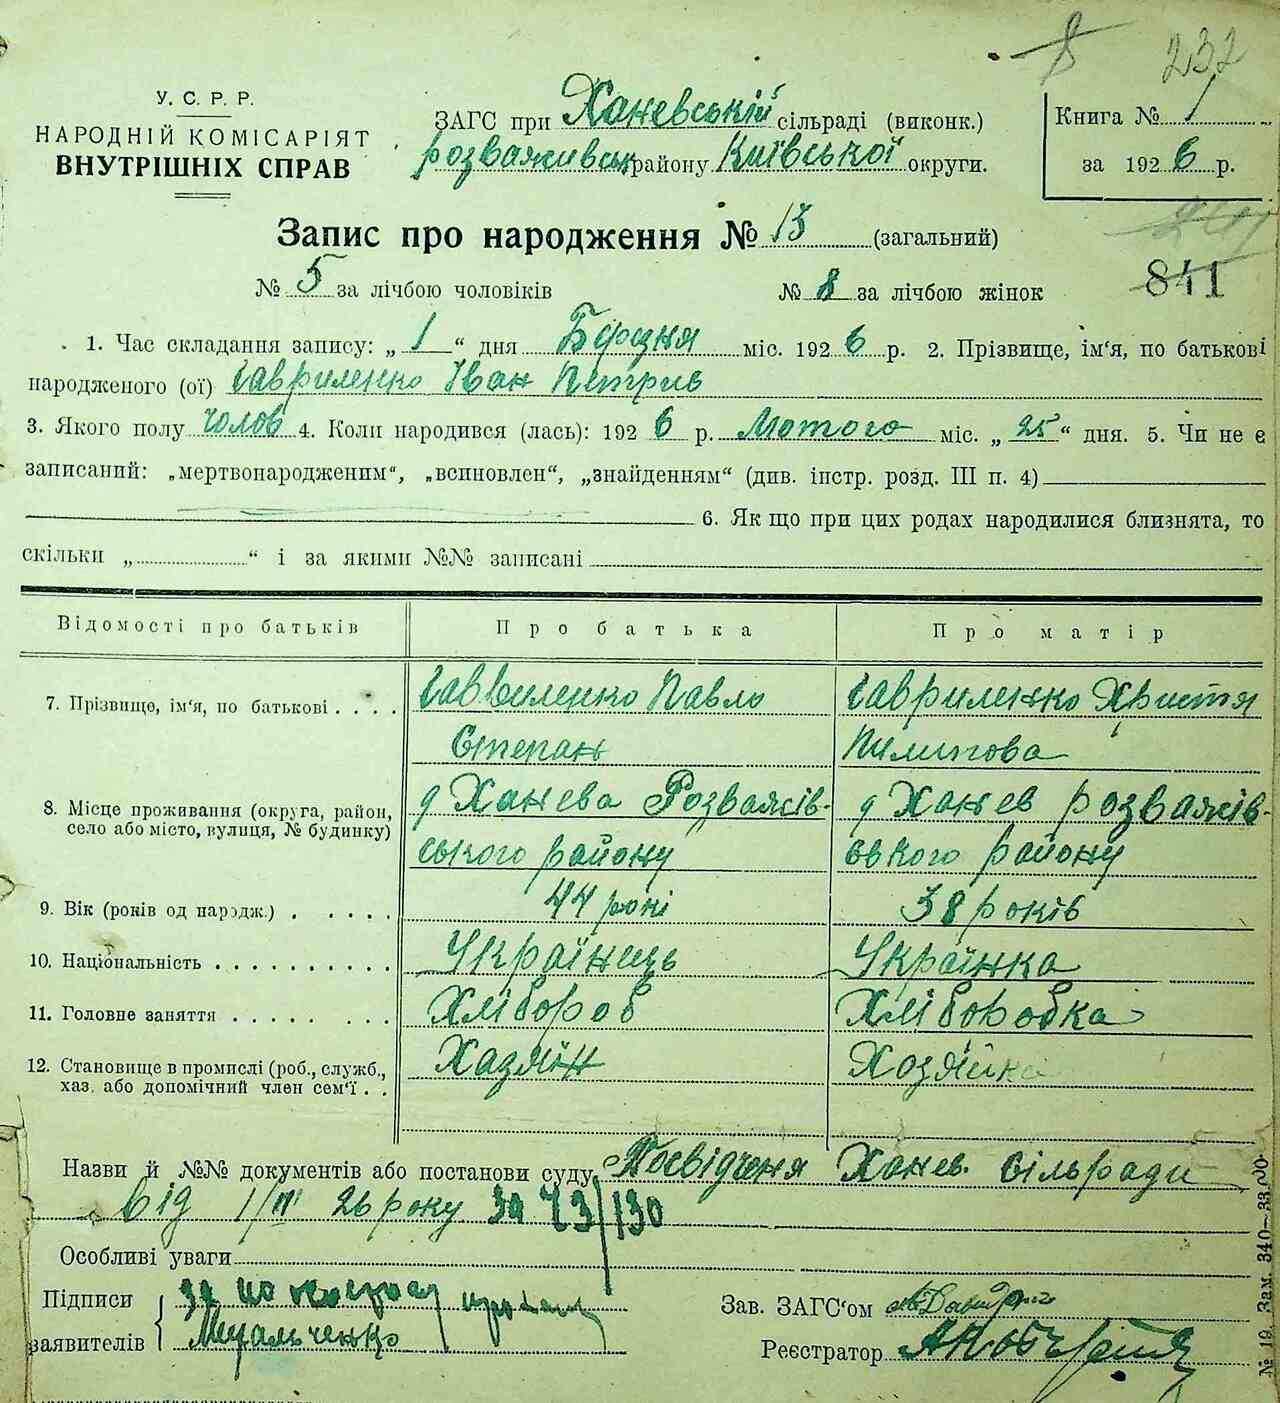 8 232
У. С. Р. Р.
НАРОДНІЙ КОМІСАРІЯТ
ВНУТРІШНІХ СПРАВ
ЗАГС при Ханевській сільраді (виконк.)
розважівськ району Київської округи.
Книга № 1
за 1926 р.
Запис про народження № 13 (загальний)
№ 5 за лічбою чоловіків № 8 за лічбою жінок
841
1. Час складання запису: „1“ дня Березня міс. 1926 р. 2. Прізвище, ім'я, по батькові
народженого (ої) Гавриленко Іван Петрив
3. Якого полу чолов 4. Коли народився (лась): 1926 р. Лютого міс. „25“ дня. 5. Чи не є
записаний: „мертвонародженим“, „всиновлен“, „знайденням“ (див. інстр. розд. III п. 4)
6. Як що при цих родах народилися близнята, то
скільки „ “ і за якими №№ записані
Відомості про батьків Про батька Про матір
7. Прізвище, ім'я, по батькові . . . . Гавриленко Павло Гавриленко Христя
Степан Пилипова
8. Місце проживання (округа, район, село або місто, вулиця, № будинку) д Ханева Розважів- д Ханев розважів-
ського району ського району
9. Вік (років од нарoдж.) . . . . . 44 рокі 38 років
10. Національність . . . . . . . . . . Українець Українка
11. Головне заняття . . . . . . . . Хлібороб Хліборобка
12. Становище в промислі (роб., служб., хаз. або допомічний член сем'ї . . Хазяїн Хозяйка
Назви й №№ документів або постанови суду Посвідченя Ханев. сільради
від 1/III 26 року за ч3/130
Особливі уваги
Підписи заявителів за
Зав. ЗАГС'ом
Реєстратор
№ 19. Зам. 340—33.000.